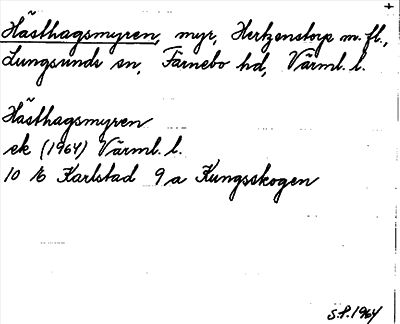 Hästhagsmyren, myr, Hertzenstorp m.fl.,
Lungsunds sn, Färnebo hd, Värml. l.
Hästhagsmyren
ek (1964) Värml. l.
10 E Karlstad 9 a Kungsskogen
S.P. 1964